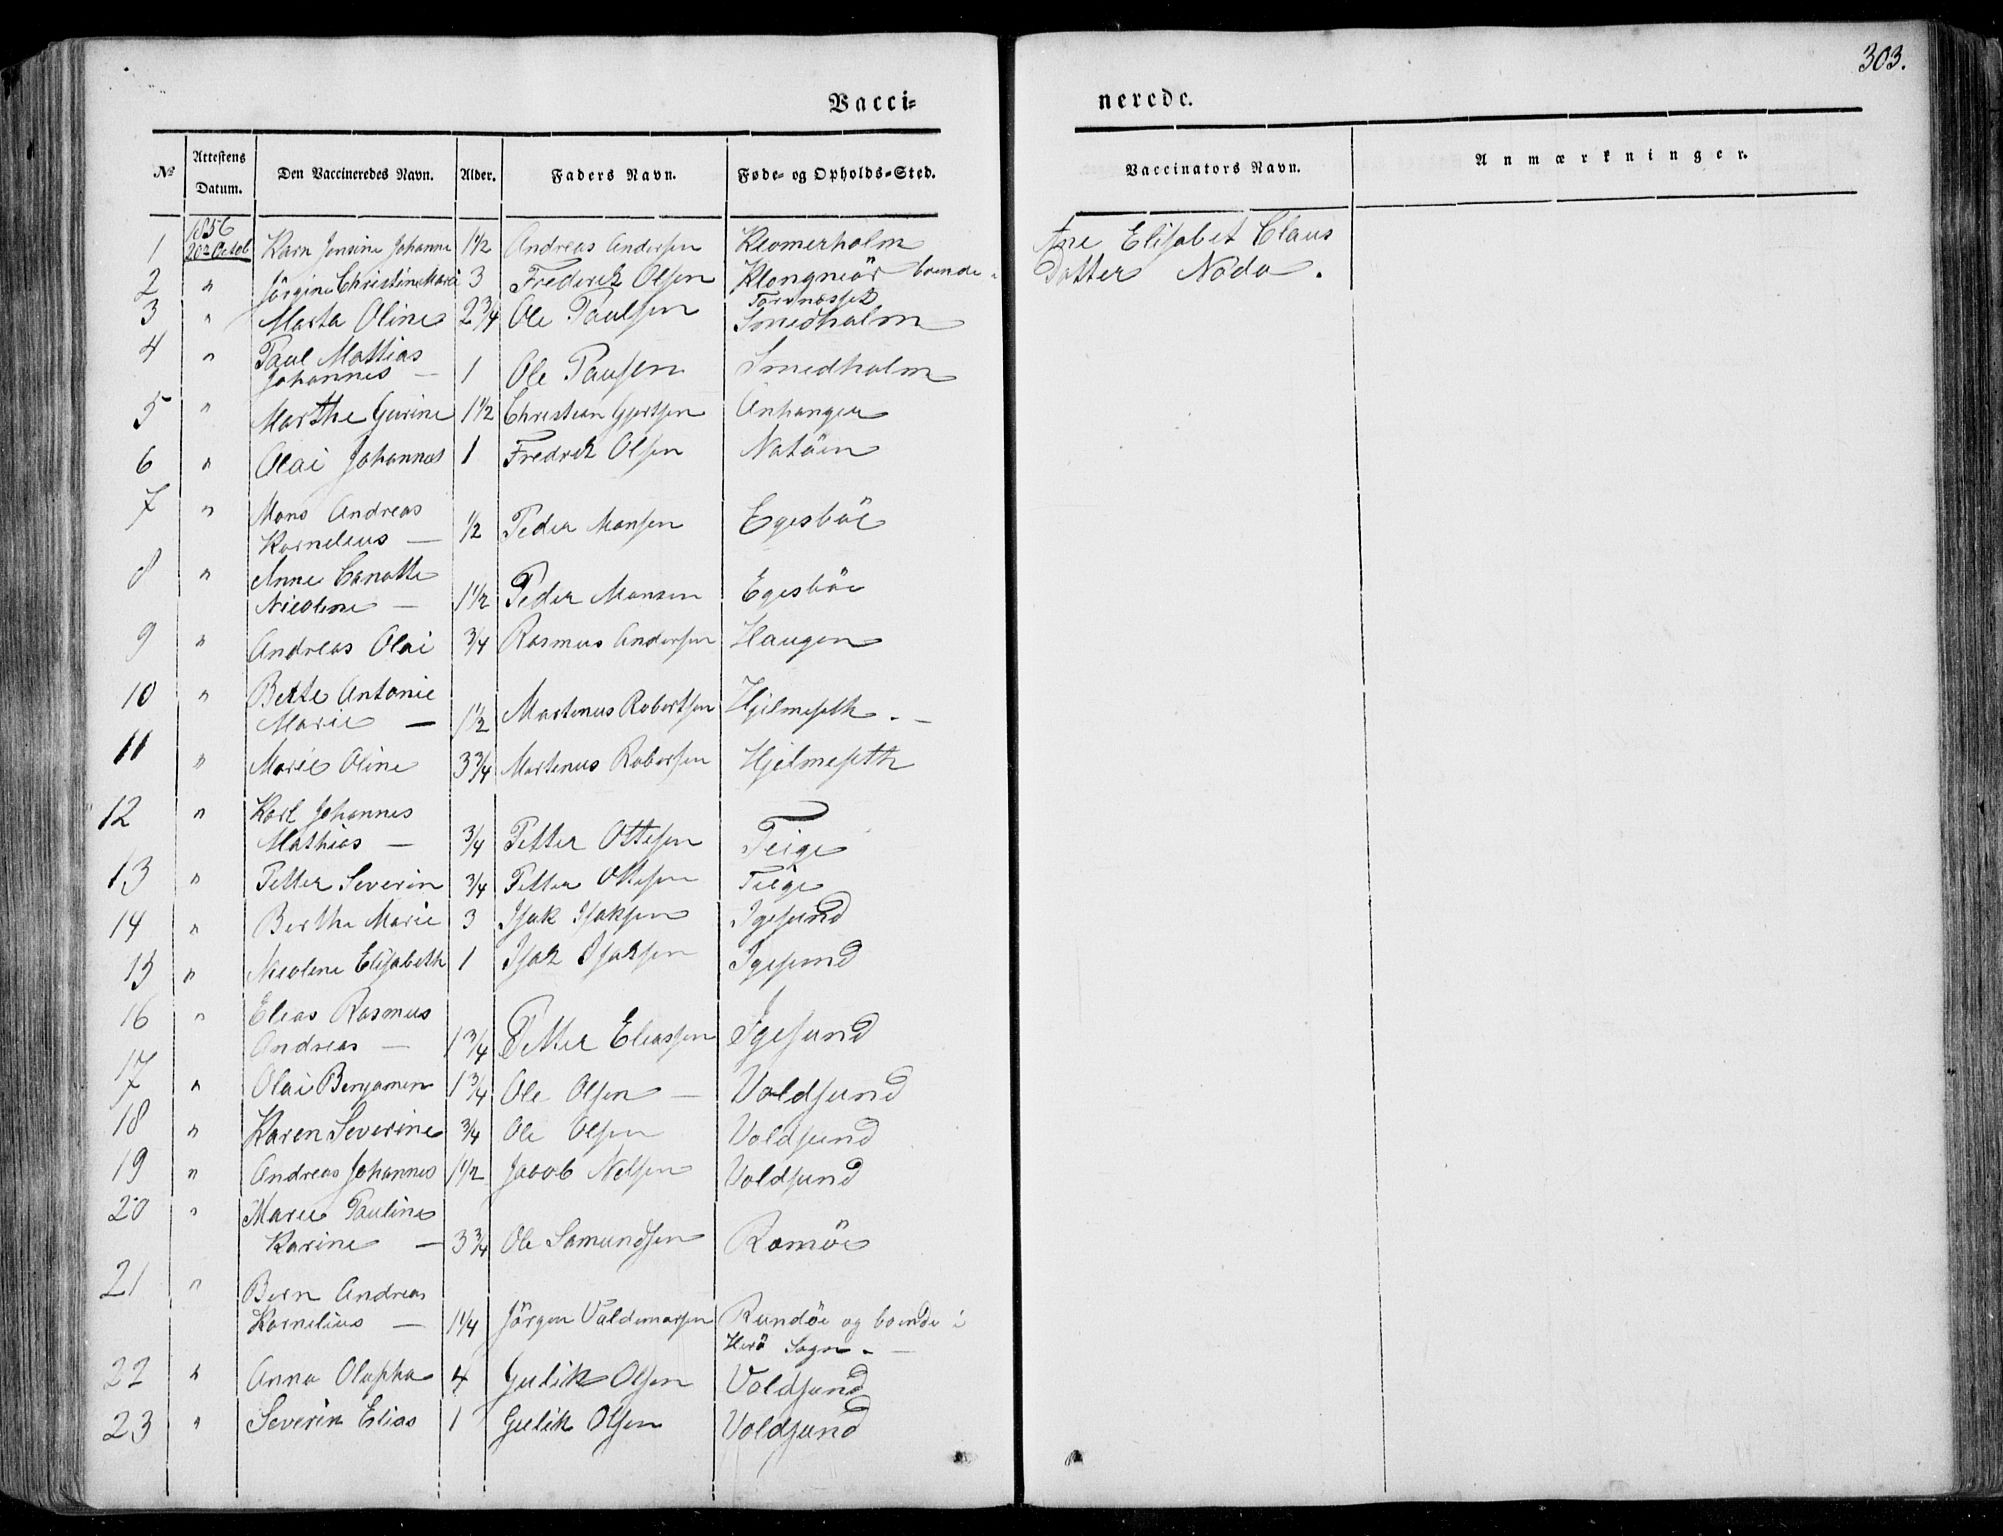 303.
Vacci=
nerede.
№ Attestens Datum. Den Vaccineredes Navn. Alder. Faders Navn. Føde- og Opholds=Sted.
Vaccinators Navn. Anmærkninger.
1856
1 20de Octob Karn Jensine Johanne 1½ Andreas Andersen
Ane Elisabet Claus
2 " Jörgine Christine Marie 3 Frederik Olsen boende
Datter Nödo.
3 " Marta Oline 2¾ Ole Paulsen Smedholm
4 " Paul Mattias
Johannes — 1 Ole Pausen Smedholm
5 " Marthe Gurine 1½ Christian Gjertsen
6 " Olai Johannes 1 Fredrek Olsen Natöen
7 " Mons Andreas
Kornelius — ½ Peder Monsen Egesböe
8 " Anne Canatte
Nicoline — 1½ Peder Monsen Egesböe
9 " Andreas Olai ¾ Rasmus Andersen Haugen
10 " Berte Antonie
Marie — 1½ Martinus Robertsen Hjelmeseth. —
11 " Marie Oline 3¾ Martinus Robersen Hjelmeseth
12 " Karl Johannes
Mathias — ¾ Petter Ottesen Teige
13 " Petter Severin ¾ Petter Ottesen Teige
14 " Berthe Marie 3 Isak Isaksen Igesund
15 " Nicoline Elisabeth 1 Isak Isaksen Igesund
16 " Elias Rasmus
Andreas — 1¾ Petter Eliassen Igesund
17 " Olai Benjamen 1¾ Ole Olsen — Voldsund
18 " Karen Severine ¾ Ole Olsen Voldsund
19 " Andreas Johannes 1½ Jacob Nelsen Voldsund
20 " Marie Pauline
Karine — 3¾ Ole Samundsen Romöe
21 " Bern Andreas
Kornelius — 1¼ Jörgen Valdemarsen Rundöe og boende i
Herö Sogn. —
22 " Anna Olepha 4 Gulik Olsen Voldsund
23 " Severin Elias 1 Gulik Olsen Voldsund